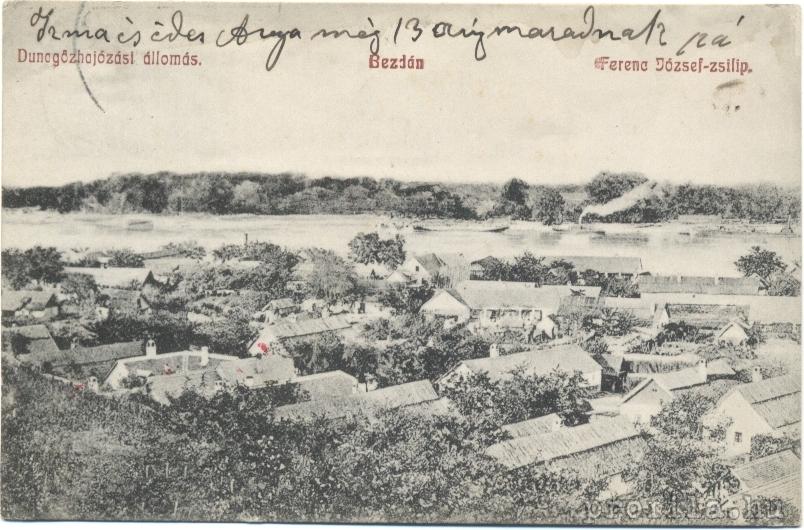 Irma és édes Anya még 13 maradnak pá
Dunagőzhajózási állomás.
Bezdán
Ferenc József-zsilip.
profila.hu